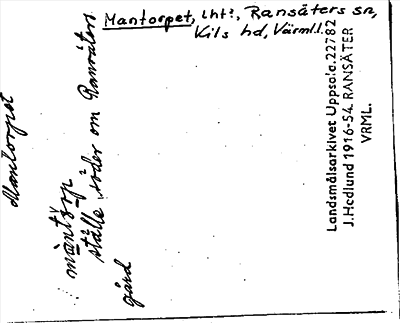 Mantorpet, lht?, Ransäters sn,
Kils hd, Värml. l.
Mantorpet
ställe söder om Ransäters
gård
Landsmålsarkivet Uppsala. 22782
J. Hedlund 1916-54. RANSÄTER
VRML.